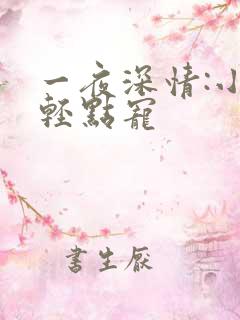 一夜深情:小
輕點寵
書生厭